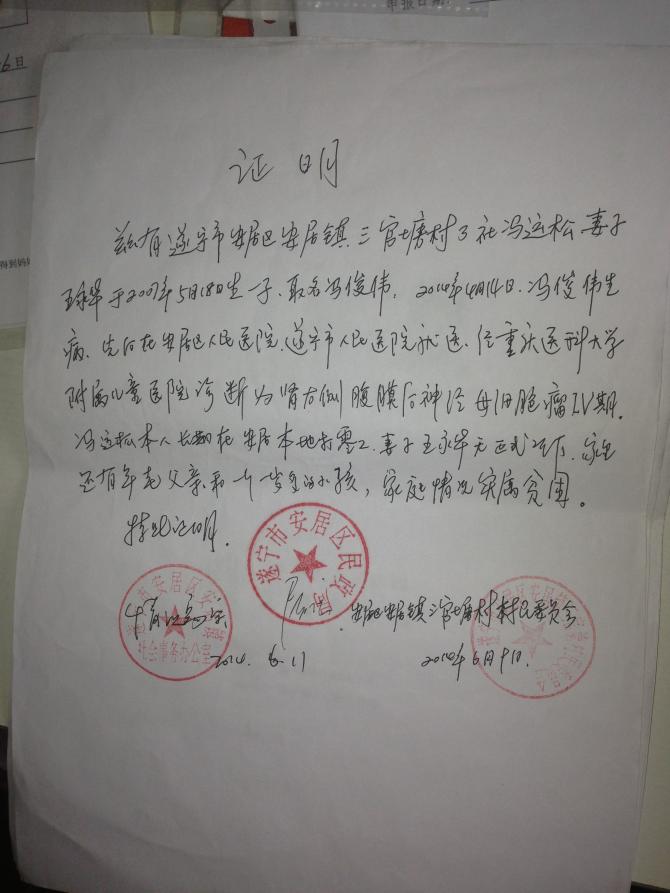 申报日期:
6日
得到妈妈
证 明
兹有遂宁市安居区安居镇三官塘村3社冯运松妻子
王永华于2007年5月18日生一子、取名冯俊伟，2014年4月14日、冯俊伟生
病、先后在安居区人民医院、遂宁市人民医院就医、经重庆医科大学
附属儿童医院诊断为肾右侧腹膜后神经母细胞瘤IV期。
冯运松本人长期在安居本地打零工、妻子王永华无正式工作、家里
还有年老父亲和一个岁的小孩，家庭情况实属贫困。
特此证明。
遂宁市安居区民政局
社会事务办公室
安居区安居镇三官塘村村民委员会
2014. 6.11
2014年6月11日.